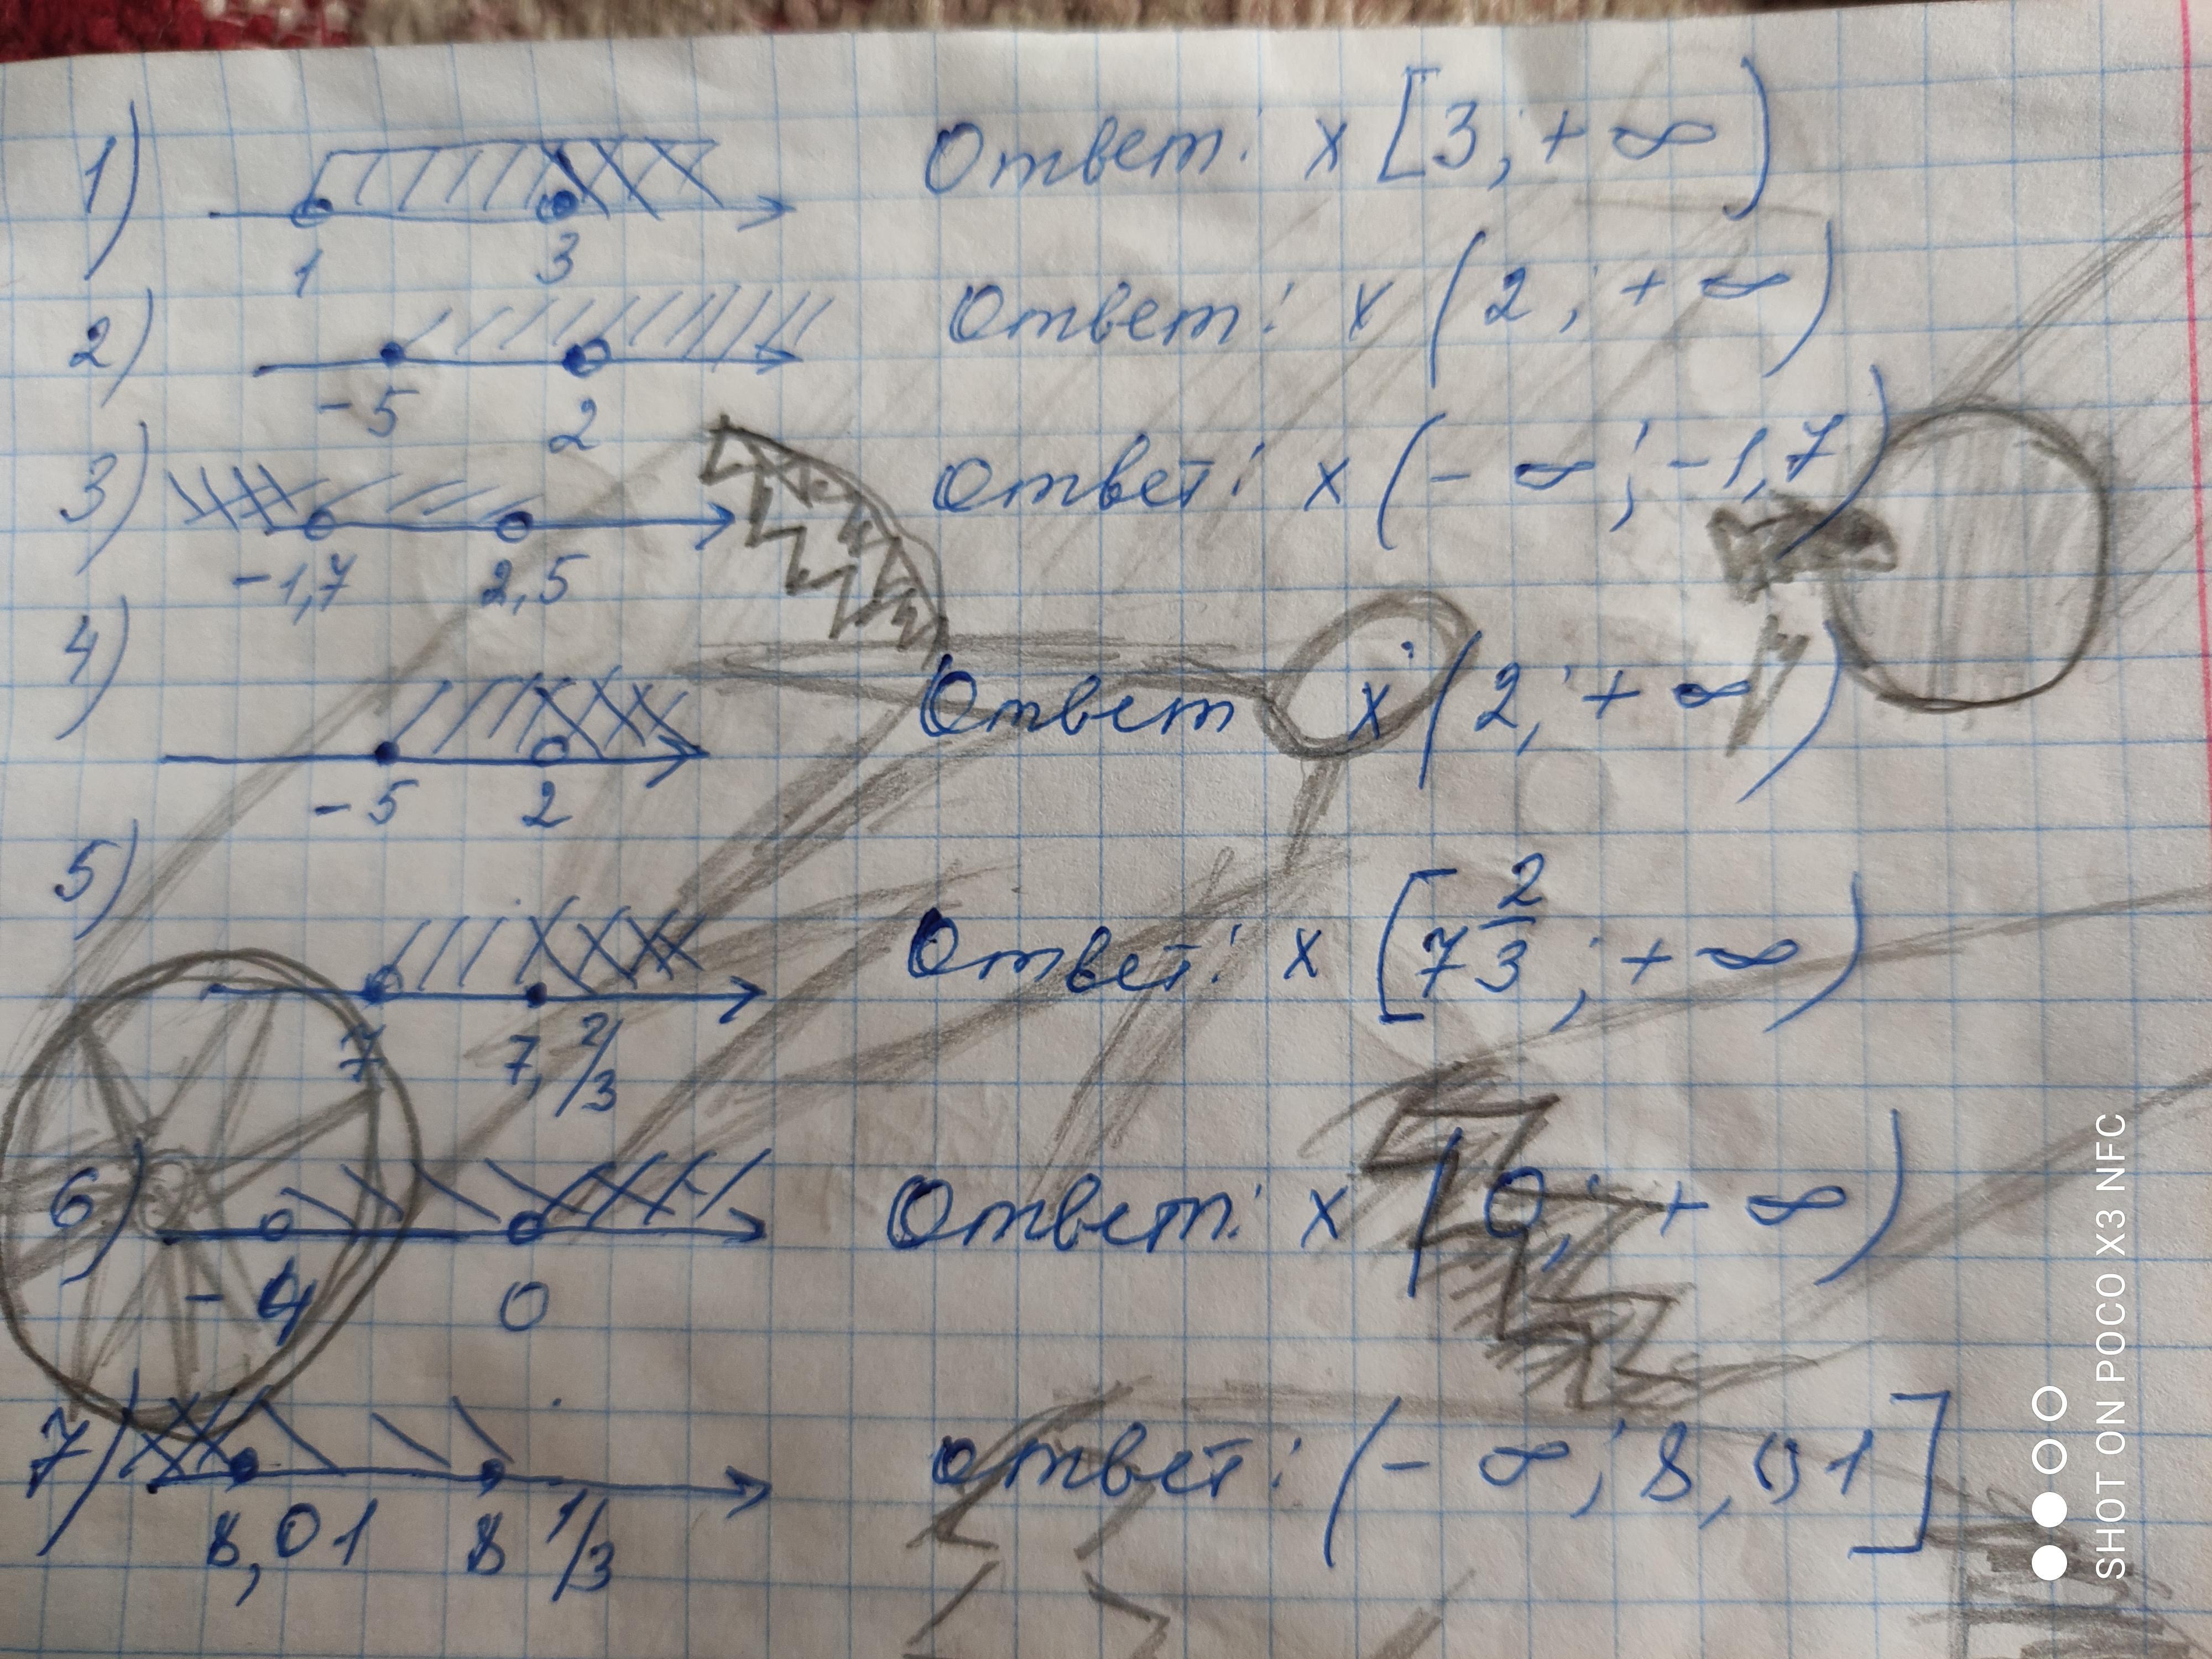 1) 1 3 Ответ: x [3; +∞)
2) -5 2 Ответ: x (2; +∞)
3) -1,7 2,5 Ответ: x (-∞; -1,7)
4) -5 2 Ответ x (2; +∞)
5) 7 7, 2/3 Ответ: x [7 2/3; +∞)
6) -4 0 Ответ: x (0; +∞)
7) 8,01 8 1/3 Ответ: (-∞; 8,01]
SHOT ON POCO X3 NFC